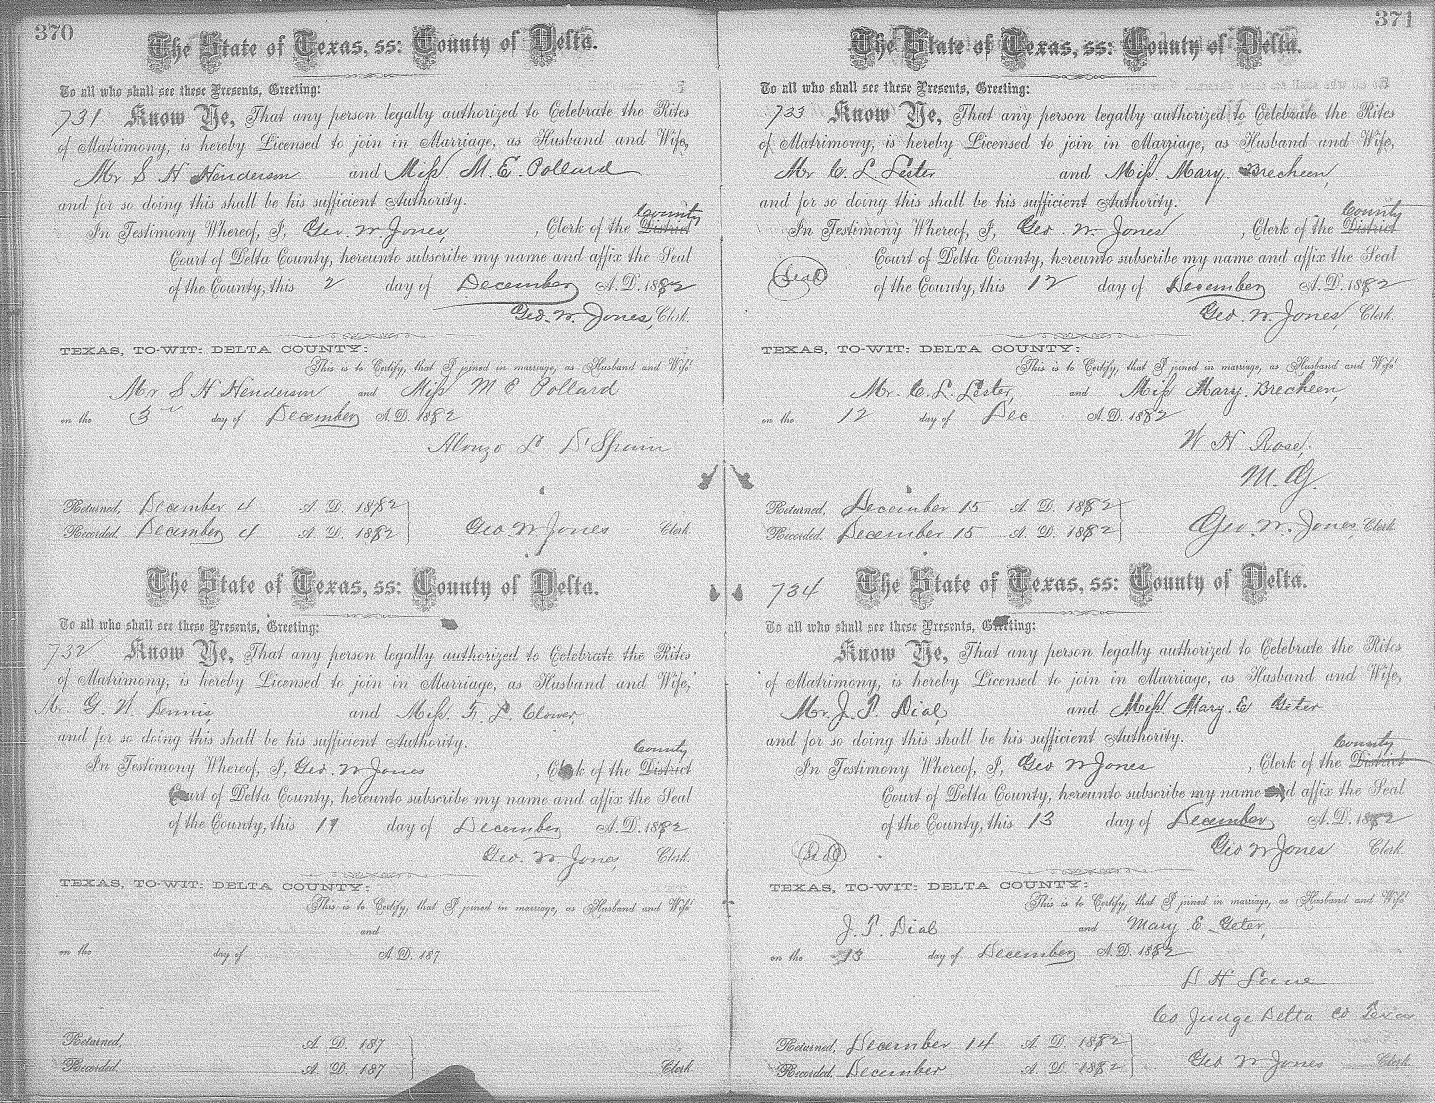 370
The State of Texas, ss: County of Delta.
To all who shall see these Presents, Greeting:
731 Know Ye, That any person legally authorized to Celebrate the Rites
of Matrimony, is hereby Licensed to join in Marriage, as Husband and Wife,
Mr S H Henderson and Miss M. E. Pollard
and for so doing this shall be his sufficient Authority.
County
In Testimony Whereof, I, Geo. W Jones, , Clerk of the District
Court of Delta County, hereunto subscribe my name and affix the Seal
of the County, this 2 day of December A.D. 1882
Geo. W. Jones, Clerk.
TEXAS, TO-WIT: DELTA COUNTY:
This is to Certify, that I joined in marriage, as Husband and Wife
Mr S H Henderson and Miss M E Pollard
on the 3rd day of December A.D. 1882
Alonzo L D'Spain
Returned, December 4 A. D. 1882
Recorded, December 4 A. D. 1882 Geo W Jones Clerk
The State of Texas, ss: County of Delta.
To all who shall see these Presents, Greeting:
732 Know Ye, That any person legally authorized to Celebrate the Rites
of Matrimony, is hereby Licensed to join in Marriage, as Husband and Wife,
Mr. G. W. Dennis, and Miss. F. L. Clower,
and for so doing this shall be his sufficient Authority.
County
In Testimony Whereof, I, Geo. W Jones , Clerk of the District
Court of Delta County, hereunto subscribe my name and affix the Seal
of the County, this 11 day of December A.D. 1882
Geo. W Jones, Clerk.
TEXAS, TO-WIT: DELTA COUNTY:
This is to Certify, that I joined in marriage, as Husband and Wife
and
on the day of A.D. 187
Returned, A. D. 187
Recorded, A. D. 187 Clerk
371
The State of Texas, ss: County of Delta.
To all who shall see these Presents, Greeting:
733 Know Ye, That any person legally authorized to Celebrate the Rites
of Matrimony, is hereby Licensed to join in Marriage, as Husband and Wife,
Mr C. L. Lester and Miss. Mary. Brecheen,
and for so doing this shall be his sufficient Authority.
County
In Testimony Whereof, I, Geo W Jones , Clerk of the District
Court of Delta County, hereunto subscribe my name and affix the Seal
Seal of the County, this 12 day of December A.D. 1882
Geo. W. Jones, Clerk.
TEXAS, TO-WIT: DELTA COUNTY:
This is to Certify, that I joined in marriage, as Husband and Wife
Mr. C. L. Lester, and Miss Mary. Brecheen,
on the 12 day of Dec A.D. 1882
W H Rose,
M. G.
Returned, December 15 A. D. 1882
Recorded, December 15 A. D. 1882 Geo. W. Jones, Clerk
734 The State of Texas, ss: County of Delta.
To all who shall see these Presents, Greeting:
Know Ye, That any person legally authorized to Celebrate the Rites
of Matrimony, is hereby Licensed to join in Marriage, as Husband and Wife,
Mr. J. P. Dial, and Miss. Mary. E Geter
and for so doing this shall be his sufficient Authority.
County
In Testimony Whereof, I, Geo W Jones , Clerk of the District
Court of Delta County, hereunto subscribe my name and affix the Seal
of the County, this 13 day of December A.D. 1882
Seal Geo W Jones Clerk.
TEXAS, TO-WIT: DELTA COUNTY:
This is to Certify, that I joined in marriage, as Husband and Wife
J. P. Dial and Mary E. Geter,
on the 13 day of December A.D. 1882
D H Lane
Co Judge Delta co Texas
Returned, December 14 A. D. 1882
Recorded, December A. D. 1882 Geo W Jones Clerk